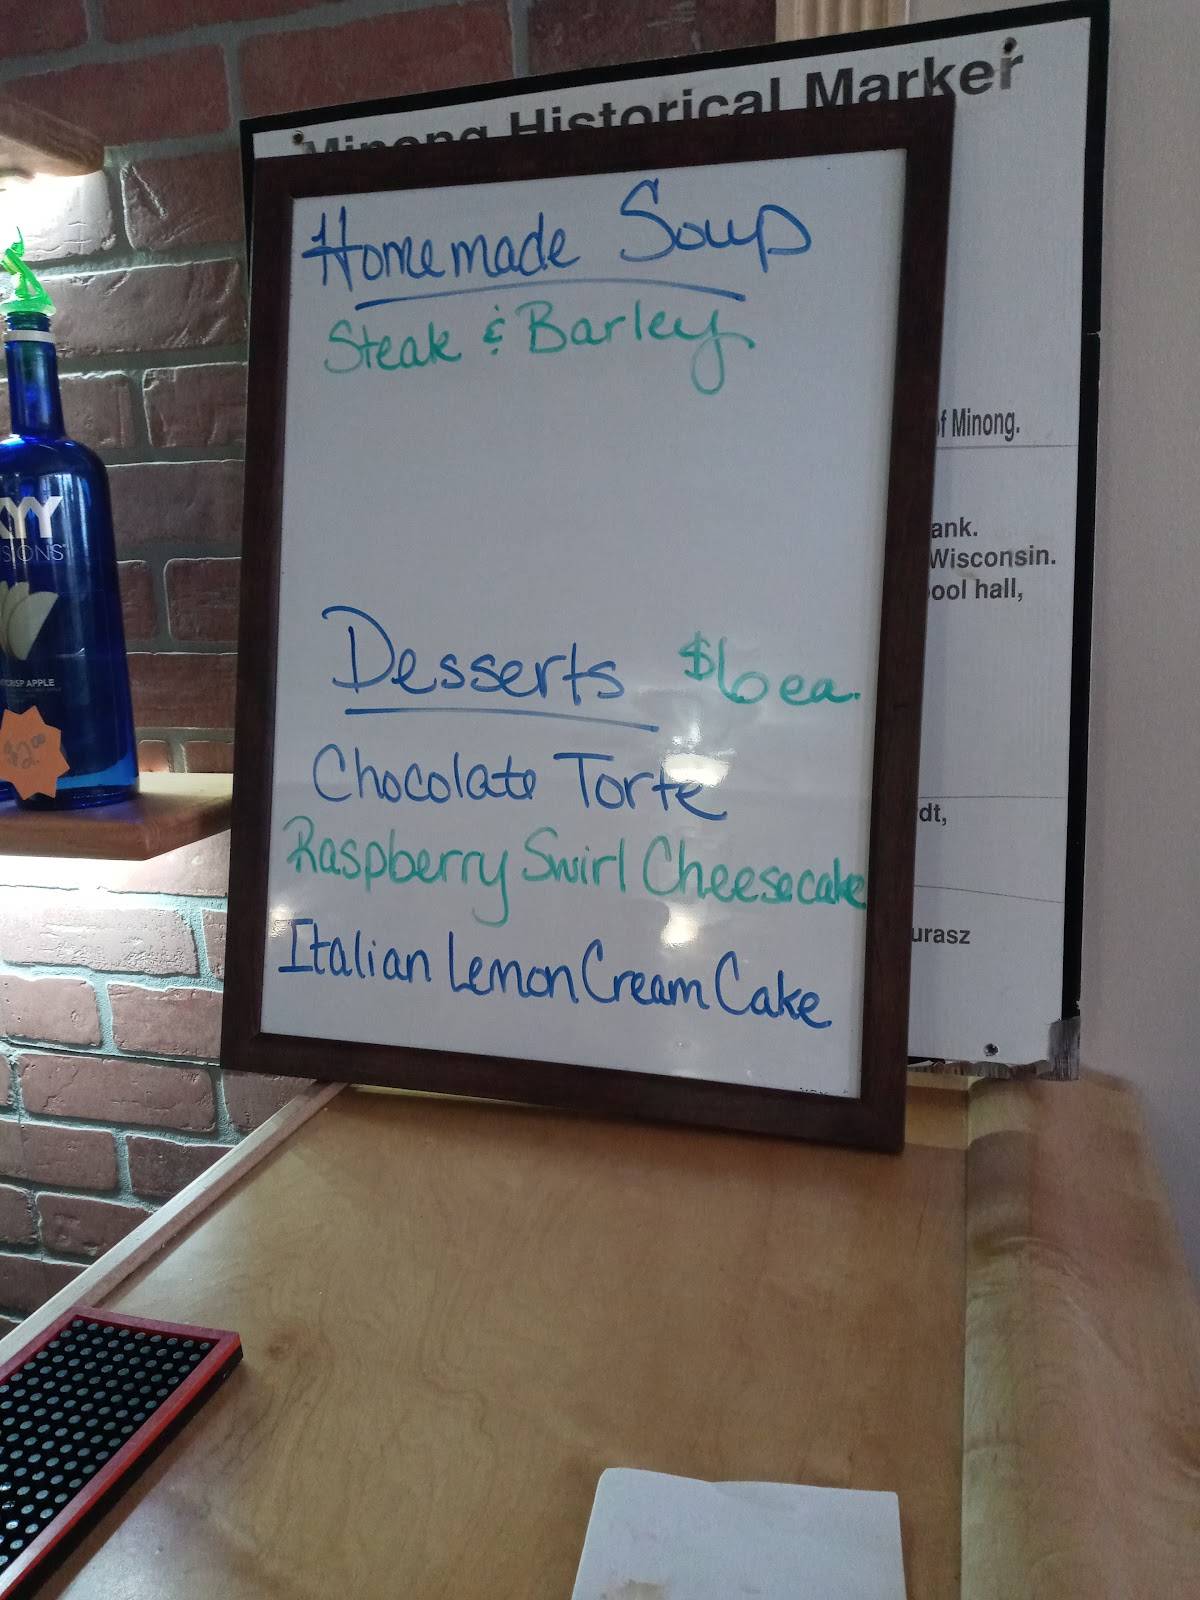 Minong Historical Marker
Homemade Soup
Steak & Barley
Desserts $6 ea.
Chocolate Torte
Raspberry Swirl Cheesecake
Italian Lemon Cream Cake
of Minong.
ank.
Wisconsin.
ool hall,
dt,
urasz
CRISP APPLE
$2.00